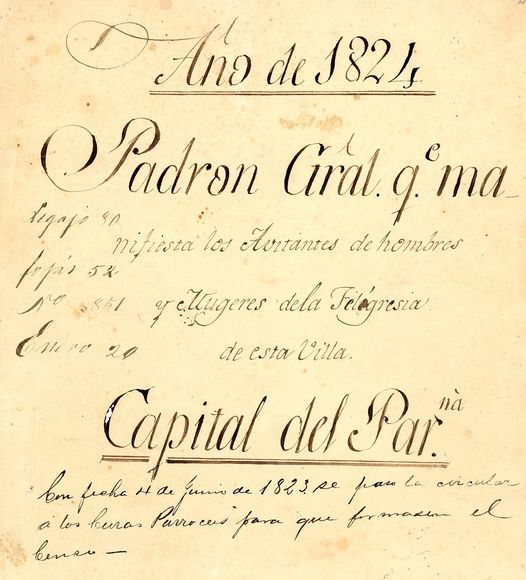 Año de 1824
Padron Gral. q.e ma-
nifiesta los Avitantes de hombres
y Mugeres dela Feligresia
de esta Villa.
Legajo 80
fojas 52
No 851
Enero 20
Capital del Par.na
Con fecha 4 de Junio de 1823 se paso la circular
a los Curas Parrocos para que formasen el
Censo —